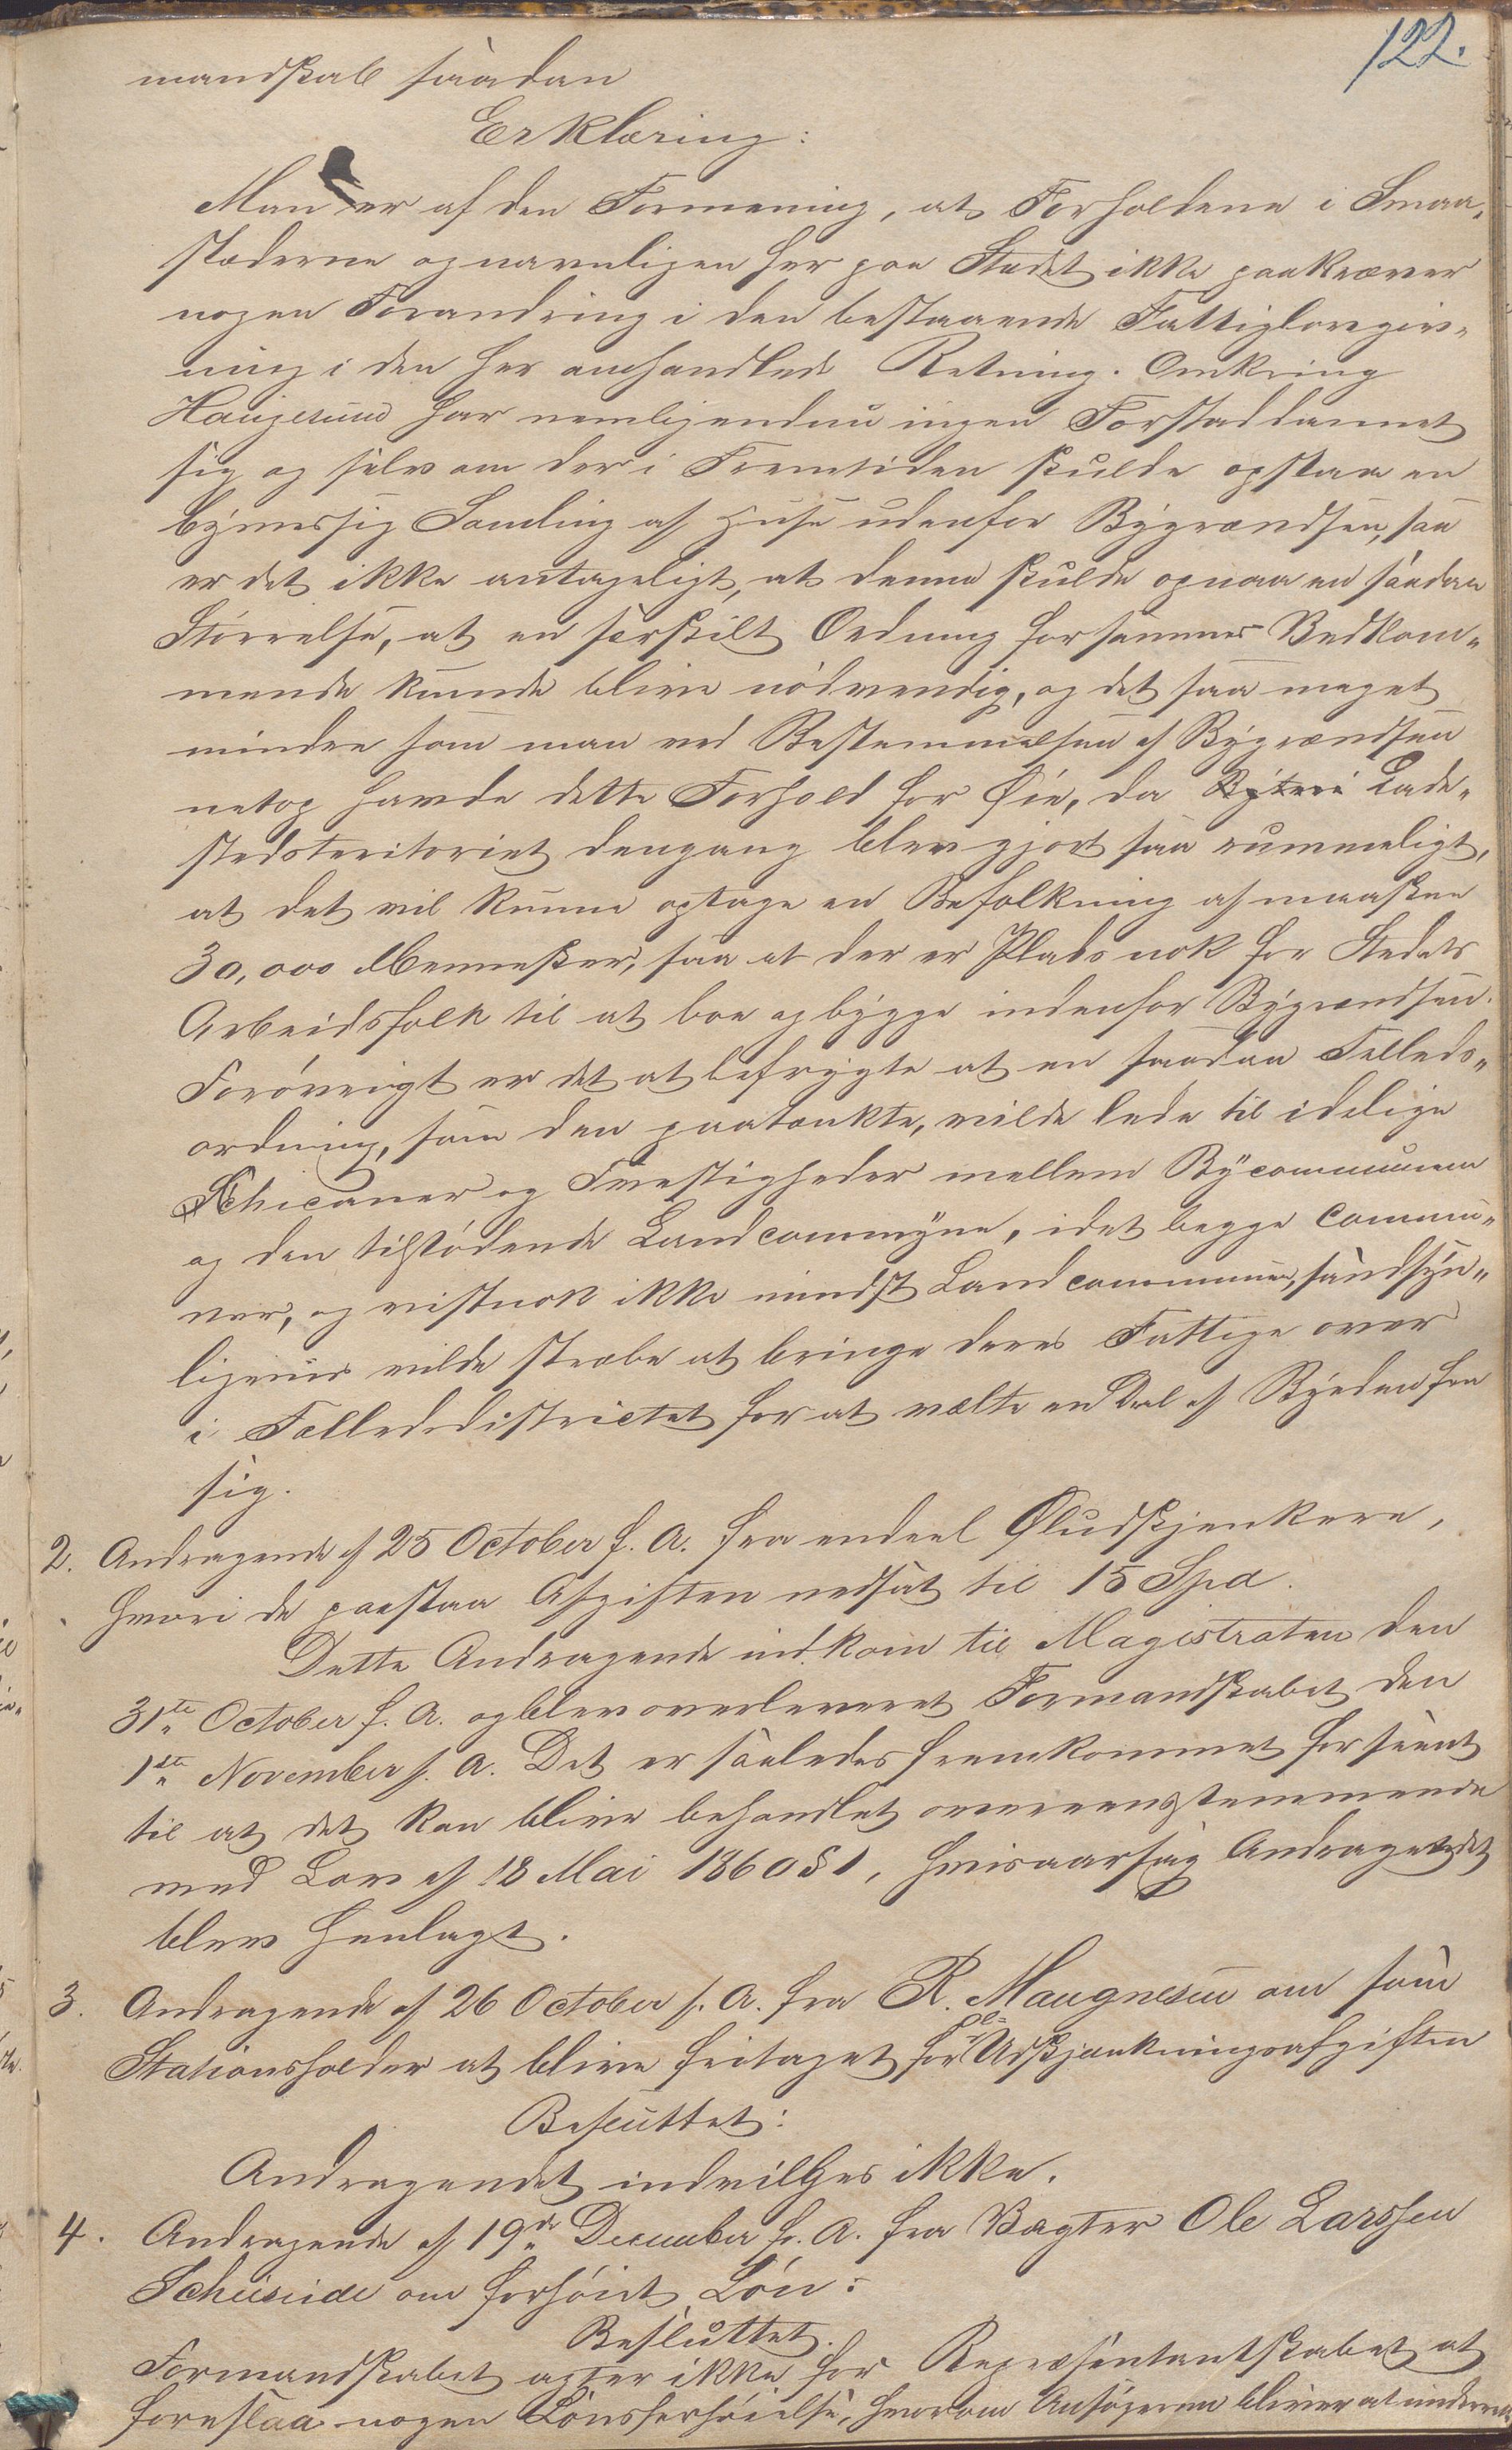 122.
mandskab saadan
Erklæring:
Man er af den Formening, at Forholdene i Smaa-
stæderne og navnligen her paa Stedet ikke paakræver
nogen Forandring i den bestaaende Fattiglovgiv-
ning i den her omhandlede Retning. Omkring
Haugesund har nemlig endnu ingen Forstad dannet
sig og selv om der i Fremtiden skulde opstaa en
bymessig Samling af Huse udenfor Bygrændsen, saa
er det ikke antageligt, at denne skulde opnaa en saadan
Størrelse, at en særskilt Ordning for sammes Vedkom-
mende kunde blive nødvendig, og det saa meget
mindre som man ved Bestemmelsen af Bygrændsen
netop havde dette Forhold for Øie, da Lade-
stedsteritoriet dengang blev gjort saa rummeligt,
at det vil kunne optage en Befolkning af maaskee
30,000 Mennesker, saa at der er Plads nok for Stedets
Arbeidsfolk til at boe og bygge indenfor Bygrændsen.
Forøvrigt er det at befrygte at en saadan Felleds-
ordning, som den paatænkte, vilde lede til idelige
Chicaner og Tvestigheder mellem Bycommunen
og den tilstødende Landcommyne, idet begge Commu-
ner, og vistnok ikke mindst Landcommunen, sandsyn-
ligviis vilde stræbe at bringe deres Fattige over
i Fælledsdistrictet for at vælte en Deel af Byrden fra
sig.
2. Andragende af 25 October f. A. fra endeel Øludskjenkere,
hvori de paastaa Afgiften nedsat til 15 Spd.
Dette Andragende indkom til Magistraten den
31te October f. A. og blev overleveret Formandskabet den
1ste November f. A. Det er saaledes fremkommet for seent
til at det kan blive behandlet overeensstemmende
med Lov af 18 Mai 1860 § 1, hvisaarsag Andragendet
blev henlagt.
3. Andragende af 26 October f. A. fra R. Maugnesen om som
Stationsholder at blive fritaget for Øl-Udskjænkningsafgiften
Besluttet:
Andragendet indvilges ikke.
4. Andragende af 19de December f. A. fra Vægter Ole Larssen
om forhøiet Løn:
Besluttet.
Formandskabet agter ikke for Repræsentantskabet at
foreslaa nogen Lønsforhøielse, hvorom Ansøgeren bliver at underrette